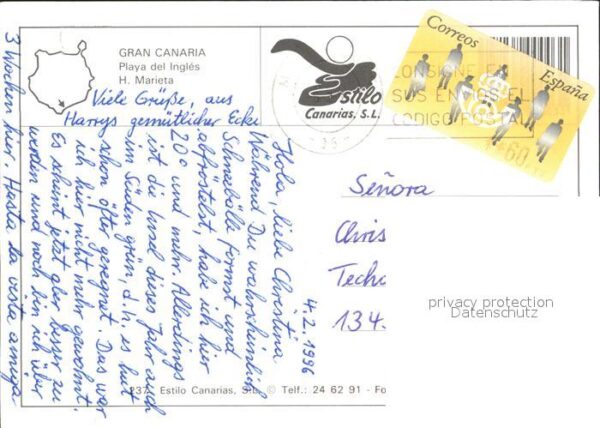 GRAN CANARIA
Playa del Inglés
H. Marieta
Viele Grüße, aus
Harrys gemütlicher Ecke
4.2.1996
Hola, liebe Christina,
Während Du wahrscheinlich
Schneebälle formst und
abfröstelst, habe ich hier
20° und mehr. Allerdings
ist die Insel dieses Jahr auch
im Süden grün, d.h. es hat
schon öfter geregnet. Das war
ich hier nicht mehr gewohnt.
Es scheint jetzt aber besser zu
werden und noch bin ich über
3 Wochen hier. Hasta la vista amiga
Estilo
Canarias, S.L.
Correos
España
60
CONSIGNE EN
SUS ENVIOS EL
CODIGO POSTA
Señora
Chris
Techn
134.
privacy protection
Datenschutz
237 Estilo Canarias, S.L. © Telf.: 24 62 91 - Fo